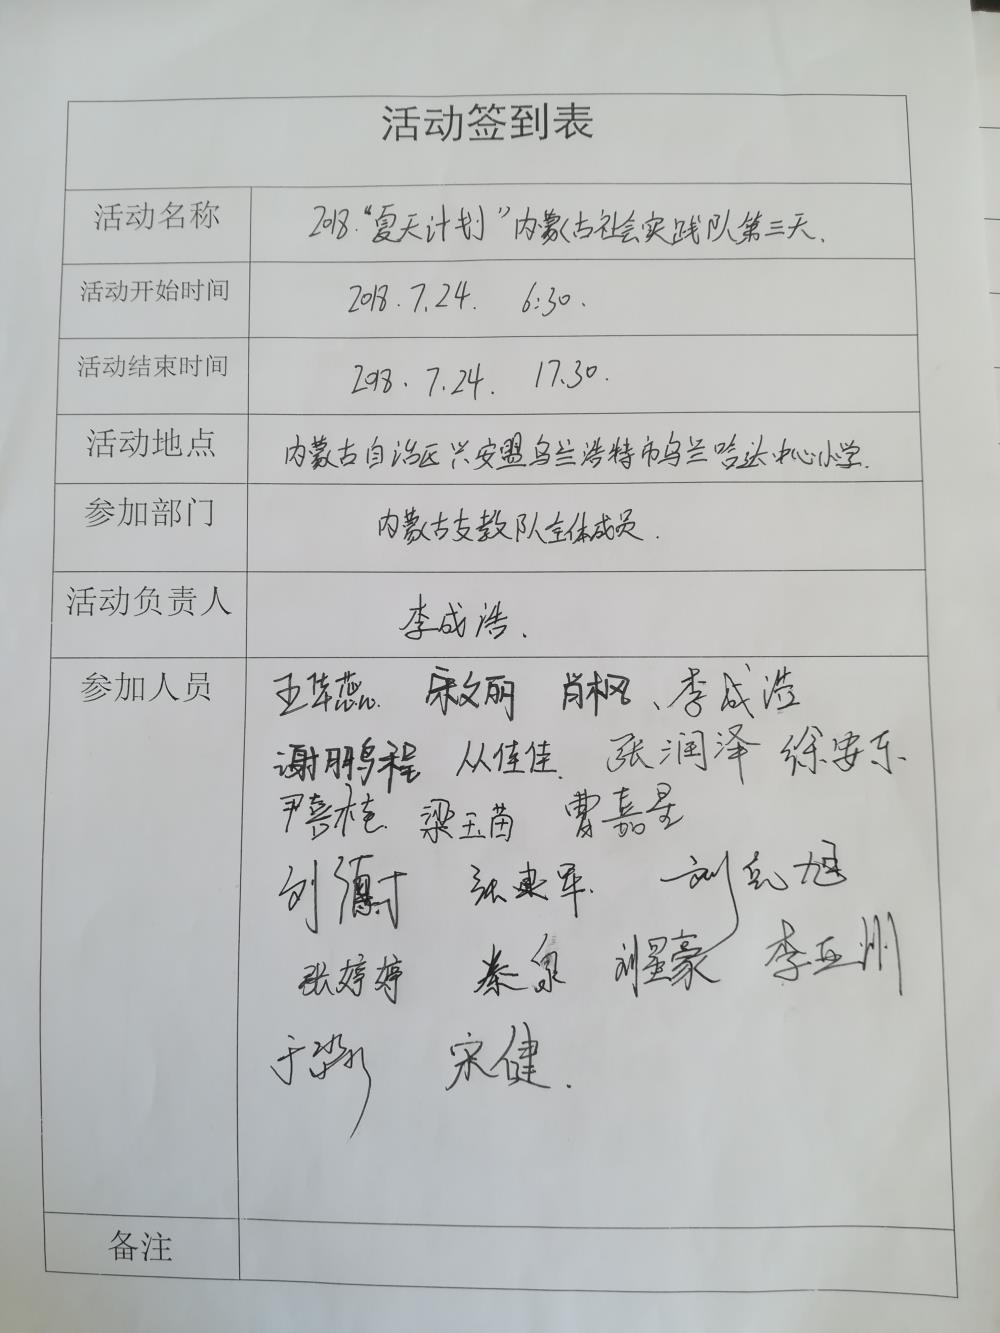 活动签到表
活动名称 2018."夏天计划"内蒙古社会实践队第三天.
活动开始时间 2018.7.24. 6:30.
活动结束时间 2018.7.24. 17.30.
活动地点 内蒙古自治区兴安盟乌兰浩特市乌兰哈达中心小学.
参加部门 内蒙古支教队全体成员.
活动负责人 李成浩.
参加人员 王华蕊. 宋文丽 肖枫、李成浩
谢鹏程 从佳佳. 张润泽 徐安东.
尹喜桂. 梁玉苗 曹嘉星
刘 张東军. 刘克旭
张婷婷 秦泉 刘星豪 李亚州
于 宋健.
备注